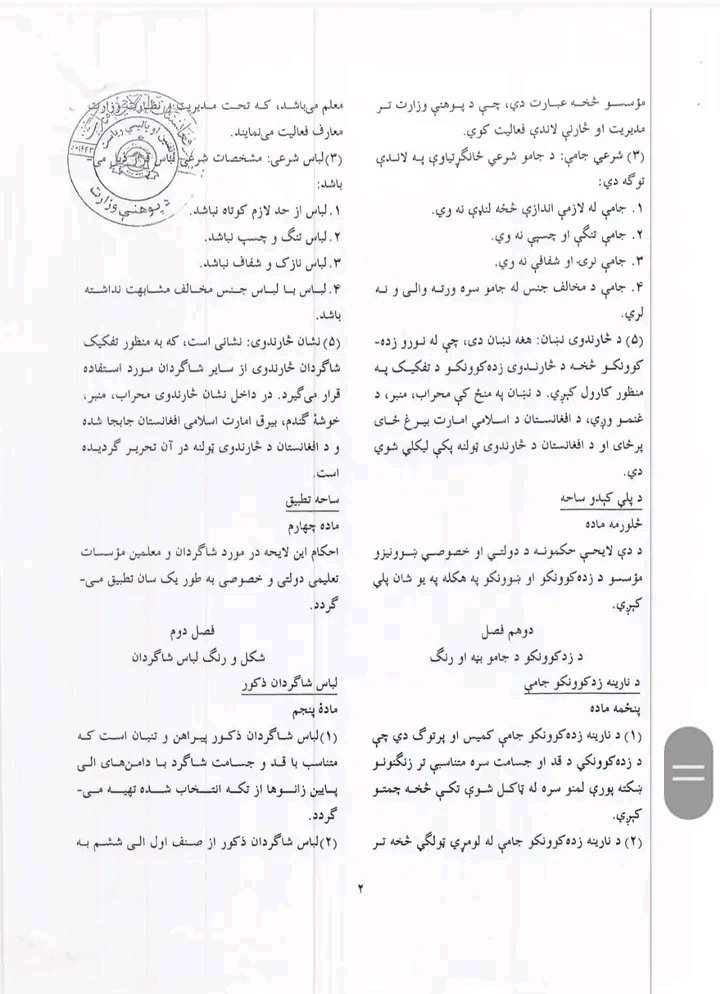 مؤسسو څخه عبارت دي، چې د پوهنې وزارت تر
مديريت او څارنې لاندې فعاليت کوي.
(۳) شرعي جامې: د جامو شرعي ځانګړتياوې په لاندې
توګه دي:
۱. جامې له لازمې اندازې څخه لنډې نه وي.
۲. جامې تنګې او چسپې نه وي.
۳. جامې نرۍ او شفافې نه وي.
۴. جامې د مخالف جنس له جامو سره ورته والی و نه
لري.
(۵) د څارندوی نښان: هغه نښان دی، چې له نورو زده-
کوونکو څخه د څارندوی زده‌کوونکو د تفکيک په
منظور کارول کېږي. د نښان په منځ کې محراب، منبر، د
غنمو وږي، د افغانستان د اسلامي امارت بيرغ ځای
پرځای او د افغانستان د څارندوی ټولنه پکې ليکلي شوي
دي.
د پلي کېدو ساحه
څلورمه ماده
د دې لايحې حکمونه د دولتي او خصوصي ښوونيزو
مؤسسو د زده‌کوونکو او ښوونکو په هکله په يو شان پلي
کېږي.
دوهم فصل
د زدکوونکو د جامو بڼه او رنگ
د نارينه زدکوونکو جامې
پنځمه ماده
(۱) د نارينه زده‌کوونکو جامې کميس او پرتوګ دي چې
د زده‌کوونکي د قد او جسامت سره متناسبې تر زنګنونو
ښکته پورې لمنو سره له ټاکل شوې ټکې څخه چمتو
کېږي.
(۲) د نارينه زده‌کوونکو جامې له لومړي ټولګي څخه تر
معلم می‌باشد، که تحت مديريت و نظارت وزارت
معارف فعاليت می‌نمايند.
(۳) لباس شرعی: مشخصات شرعی لباس قرار ذيل می-
باشد:
۱. لباس از حد لازم کوتاه نباشد.
۲. لباس تنگ و چسپ نباشد.
۳. لباس نازک و شفاف نباشد.
۴. لباس با لباس جنس مخالف مشابهت نداشته
باشد.
(۵) نشان څارندوی: نشانی است، که به منظور تفکيک
شاگردان څارندوی از ساير شاگردان مورد استفاده
قرار می‌گيرد. در داخل نشان څارندوی محراب، منبر،
خوشۀ گندم، بيرق امارت اسلامی افغانستان جابجا شده
و د افغانستان د څارندوی ټولنه در آن تحرير گرديده
است.
ساحه تطبيق
ماده چهارم
احکام اين لايحه در مورد شاگردان و معلمين مؤسسات
تعليمی دولتی و خصوصی به طور يک سان تطبيق می-
گردد.
فصل دوم
شکل و رنگ لباس شاگردان
لباس شاگردان ذکور
مادۀ پنجم
(۱) لباس شاگردان ذکور پيراهن و تنبان است که
متناسب با قد و جسامت شاگرد با دامن‌های الی
پايين زانوها از تکه انتخاب شده تهيه می-
گردد.
(۲) لباس شاگردان ذکور از صنف اول الی ششم به
د پوهنې وزارت
۲